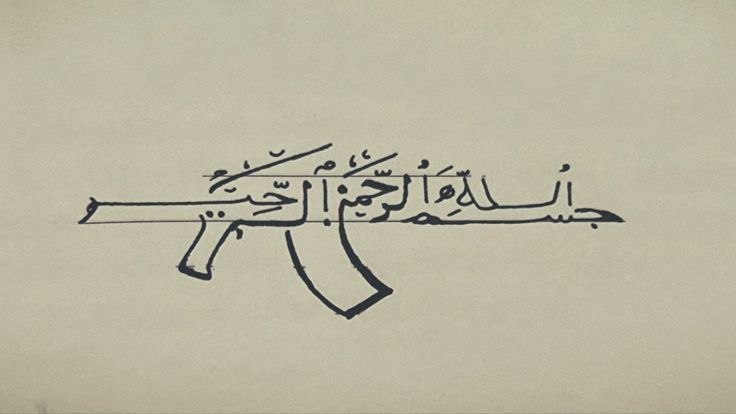 بسم اللّه الرّحمن الرّحيم